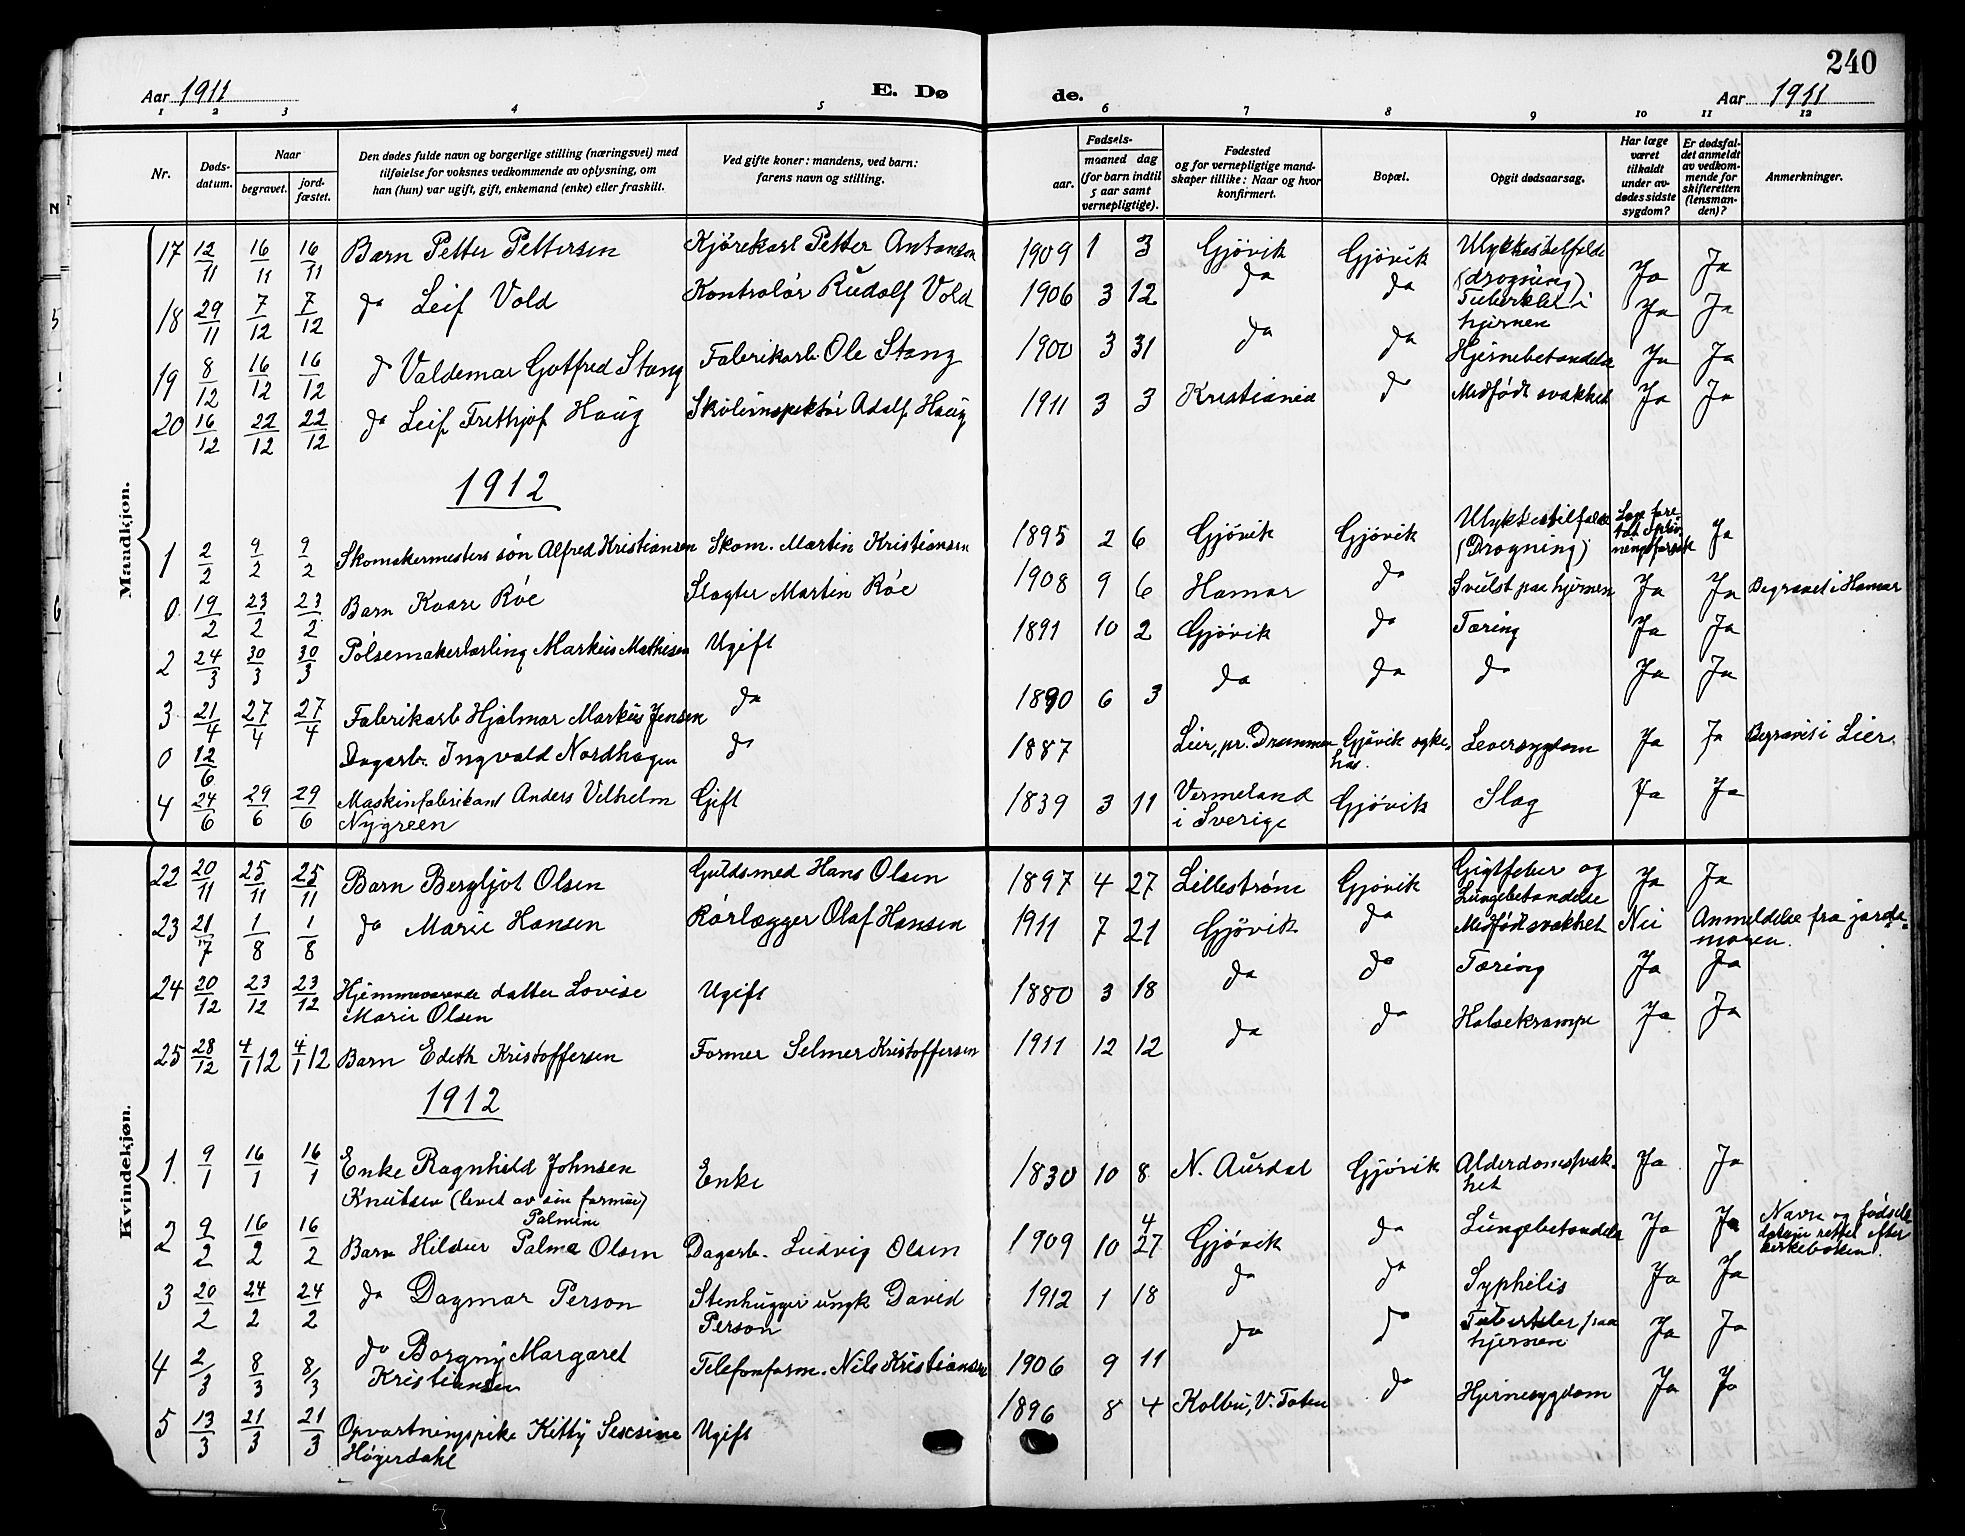 240
Aar 1911
E. Dø
de.
Aar 1911
1 2 3 4 5 6 7 8 9 10 11 12
Nr.
Døds-
datum.
Naar
begravet.
jord-
fæstet.
Den dødes fulde navn og borgerlige stilling (næringsvei) med
tilføielse for voksnes vedkommende av oplysning, om
han (hun) var ugift, gift, enkemand (enke) eller fraskilt.
Ved gifte koner: mandens, ved barn:
farens navn og stilling.
Fødsels-
aar.
maaned dag
(for barn indtil
5 aar samt
vernepligtige).
Fødested
og for vernepligtige mand-
skaper tillike: Naar og hvor
konfirmert.
Bopæl.
Opgit dødsaarsag.
Har læge
været
tilkaldt
under av-
dødes sidste
sygdom?
Er dødsfal-
det anmeldt
av vedkom-
mende for
skifteretten
(lensman-
den)?
Anmerkninger.
Mandkjøn.
17 12/11 16/11 16/11 Barn Petter Pettersen Kjörekarl Petter Antonsen 1909 1 3 Gjövik Gjövik Ulykkestilfelde (drogning) Ja Ja
18 29/11 7/12 7/12 do Leif Vold Kontrolör Rudolf Vold 1906 3 12 do do Tuberkler i hjernen Ja Ja
19 8/12 16/12 16/12 do Valdemar Gotfred Stang Fabrikarb. Ole Stang 1900 3 31 do do Hjernebetændelse Ja Ja
20 16/12 22/12 22/12 do Leif Frithjof Haug Skoleinspektör Adolf Haug 1911 3 3 Kristiania do Medfödt svakhet Ja Ja
1912
1 2/2 9/2 9/2 Skomakermesters sön Alfred Kristiansen Skom. Martin Kristiansen 1895 2 6 Gjövik Gjövik Ulykkestilfælde (Drogning) Ja
0 19/2 23/2 23/2 Barn Kaare Röe Slagter Martin Röe 1908 9 6 Hamar do Svulst paa hjernen Ja Ja Begravet i Hamar
2 24/3 30/3 30/3 Pölsemakerlærling Markus Mathisen Ugift 1891 10 2 Gjövik do Tæring Ja Ja
3 21/4 27/4 27/4 Fabrikarb Hjalmar Markus Jensen do 1890 6 3 do do do Ja Ja
0 12/6 Dagarb. Ingvald Nordhagen do 1887 Lier, pr. Drammen Gjövik syke-
hus. Leversygdom Ja Ja Begraves i Lier.
4 24/6 29/6 29/6 Maskinfabrikant Anders Vilhelm
Nygreen Gift 1839 3 11 Vermeland
i Sverige Gjövik Slag Ja Ja
Kvindekjøn.
22 20/11 25/11 25/11 Barn Bergljot Olsen Guldsmed Hans Olsen 1897 4 27 Lilleström Gjövik Gigtfeber og
Lungebetændelse Ja Ja
23 21/7 1/8 1/8 do Marie Hansen Rörlægger Olaf Hansen 1911 7 21 Gjövik do Medfödt svakhet Nei Anmeldelse fra jorda-
moren.
24 20/12 23/12 23/12 Hjemmeværende datter Lovise
Marie Olsen Ugift 1880 3 18 do do Tæring Ja Ja
25 28/12 4/1 12 4/1 12 Barn Edith Kristoffersen Former Selmer Kristoffersen 1911 12 12 do do Halsekrampe Ja Ja
1912
1. 9/1 16/1 16/1 Enke Ragnhild Johnsen
Knutsen (levet av sin formue) Enke 1830 10 8 N. Aurdal Gjövik Alderdomssvak-
het Ja Ja
2 9/2 16/2 16/2 Barn Hildur Palma Olsen
Palmine
Dagarb. Ludvig Olsen 1909 10 27
4
Gjövik do Lungebetændelse Ja Ja Navn og födsels
datum rettet efter
kirkeboken.
3 20/2 24/2 24/2 do Dagmar Person Stenhugger ungk David
Person 1912 1 18 do do Syphilis Ja Ja
4 2/3 8/3 8/3 do Borgny Margaret
Kristiansen Telefonform. Nils Kristiansen 1906 9 11 do do Tuberkler paa
hjernen Ja Ja
5 13/3 21/3 21/3 Opvartningspike Kitty
Högerdahl Ugift 1896 8 4 Kolbu, V. Toten do Hjernesygdom Ja Ja